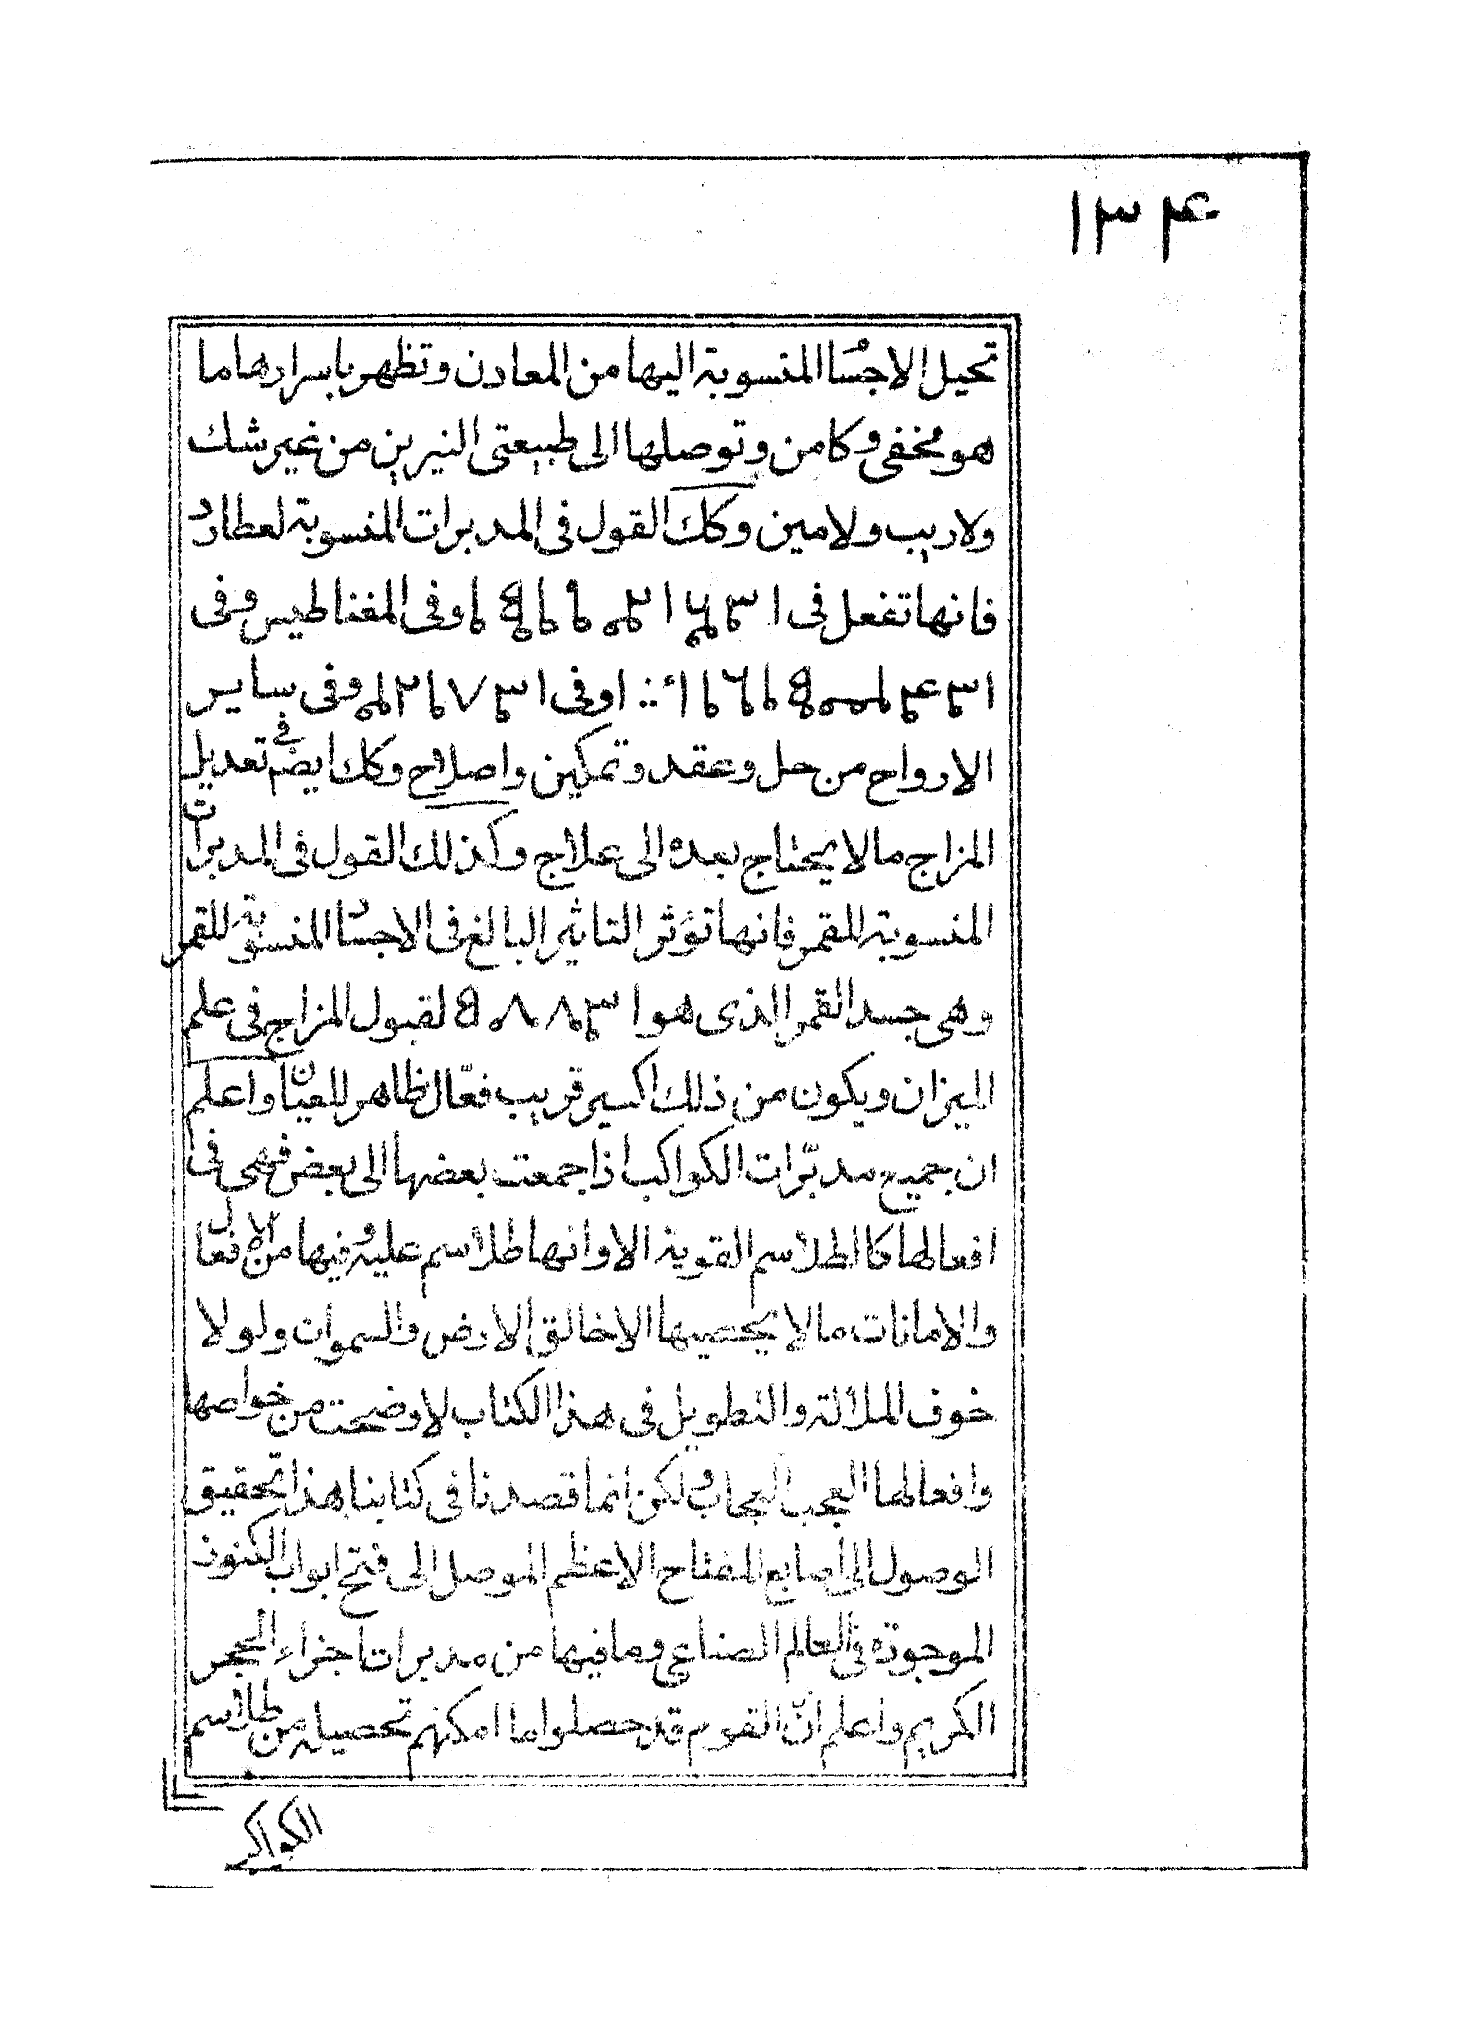 ١٣۴
تحيل الاجسٰا المنسوبة اليها من المعادن وتظهر باسرارها ما
هو مخفى وكامن وتوصلها الى طبيعتى النيرين من غير شك
ولا ريب ولا مين وكك القول فى المدبرات المنسوبة لعطارد
فانها تفعل فى وفى المغناطيس وفى
اوفى وفى ساير
الارواح من حل وعقد وتمكين واصلاح وكك ايضم فى تعديل
المزاج مالا يحتاج بعده الى علاج وكذلك القول فى المدبرات
المنسوبة للقمر فانها تؤثر التاثير البالغ فى الاجساد المنسوبة للقمر
وهى جسد القمر الذى هو لقبول المزاج فى علم
الميزان ويكون من ذلك اكسير قريب فعّال ظاهر للعيان واعلم
ان جميع مدبّرات الكواكب اذا جمعت بعضها الى بعض فهى فى
افعالها كالطلاسم القوية الا وانها طلاسم عليه وفيها من الافعال
والامانات مالا يحصيها الا خالق الارض والسموات ولولا
خوف الملالة والتطويل فى هذا الكتاب لاوضحت من خواصها
وافعالها العجب العجاب ولكن انما قصدنا فى كتابنا هذا تحقيق
الوصول الى اصابع المفتاح الاعظم الموصل الى فتح ابواب الكنوز
الموجودة فى العالم الصناعى وما فيها من مدبرات اجزاء الحجر
الكريم واعلم انّ القوم قد حصلوا ما امكنهم تحصيله من طلاسم
الكواكب